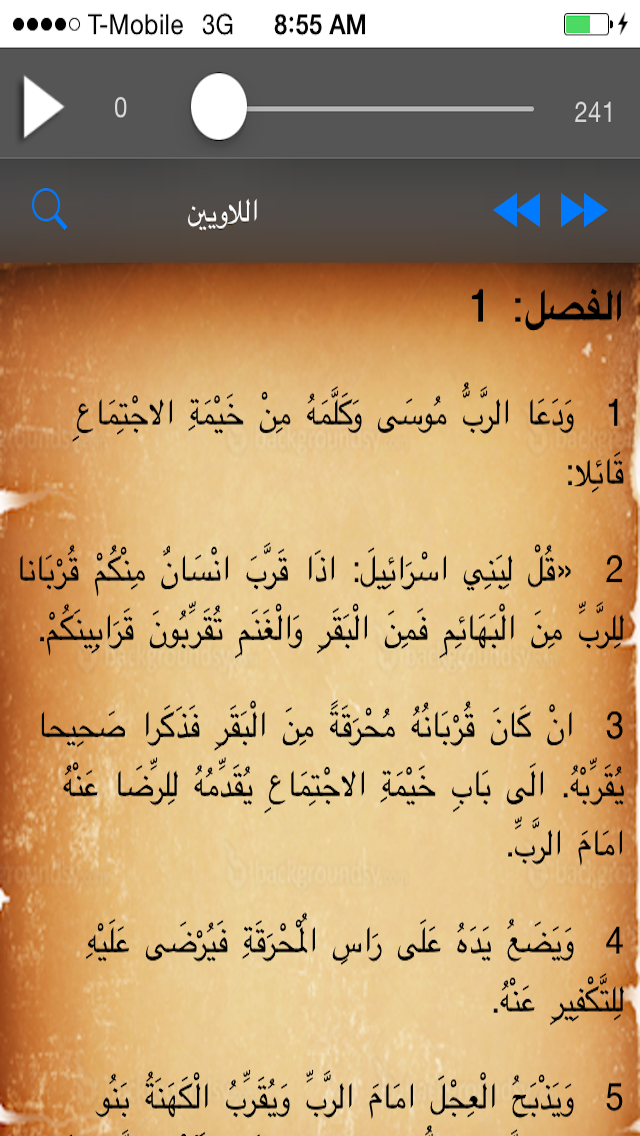 T-Mobile 3G 8:55 AM
0 241
اللاويين
الفصل: 1
1 وَدَعَا الرَّبُّ مُوسَى وَكَلَّمَهُ مِنْ خَيْمَةِ الاجْتِمَاعِ
قَائِلا:
2 «قُلْ لِبَنِي اسْرَائِيلَ: اذَا قَرَّبَ انْسَانٌ مِنْكُمْ قُرْبَانا
لِلرَّبِّ مِنَ الْبَهَائِمِ فَمِنَ الْبَقَرِ وَالْغَنَمِ تُقَرِّبُونَ قَرَابِينَكُمْ.
3 انْ كَانَ قُرْبَانُهُ مُحْرَقَةً مِنَ الْبَقَرِ فَذَكَرا صَحِيحا
يُقَرِّبْهُ. الَى بَابِ خَيْمَةِ الاجْتِمَاعِ يُقَدِّمُهُ لِلرِّضَا عَنْهُ
امَامَ الرَّبِّ.
4 وَيَضَعُ يَدَهُ عَلَى رَاسِ الْمُحْرَقَةِ فَيُرْضَى عَلَيْهِ
لِلتَّكْفِيرِ عَنْهُ.
5 وَيَذْبَحُ الْعِجْلَ امَامَ الرَّبِّ وَيُقَرِّبُ الْكَهَنَةُ بَنُو